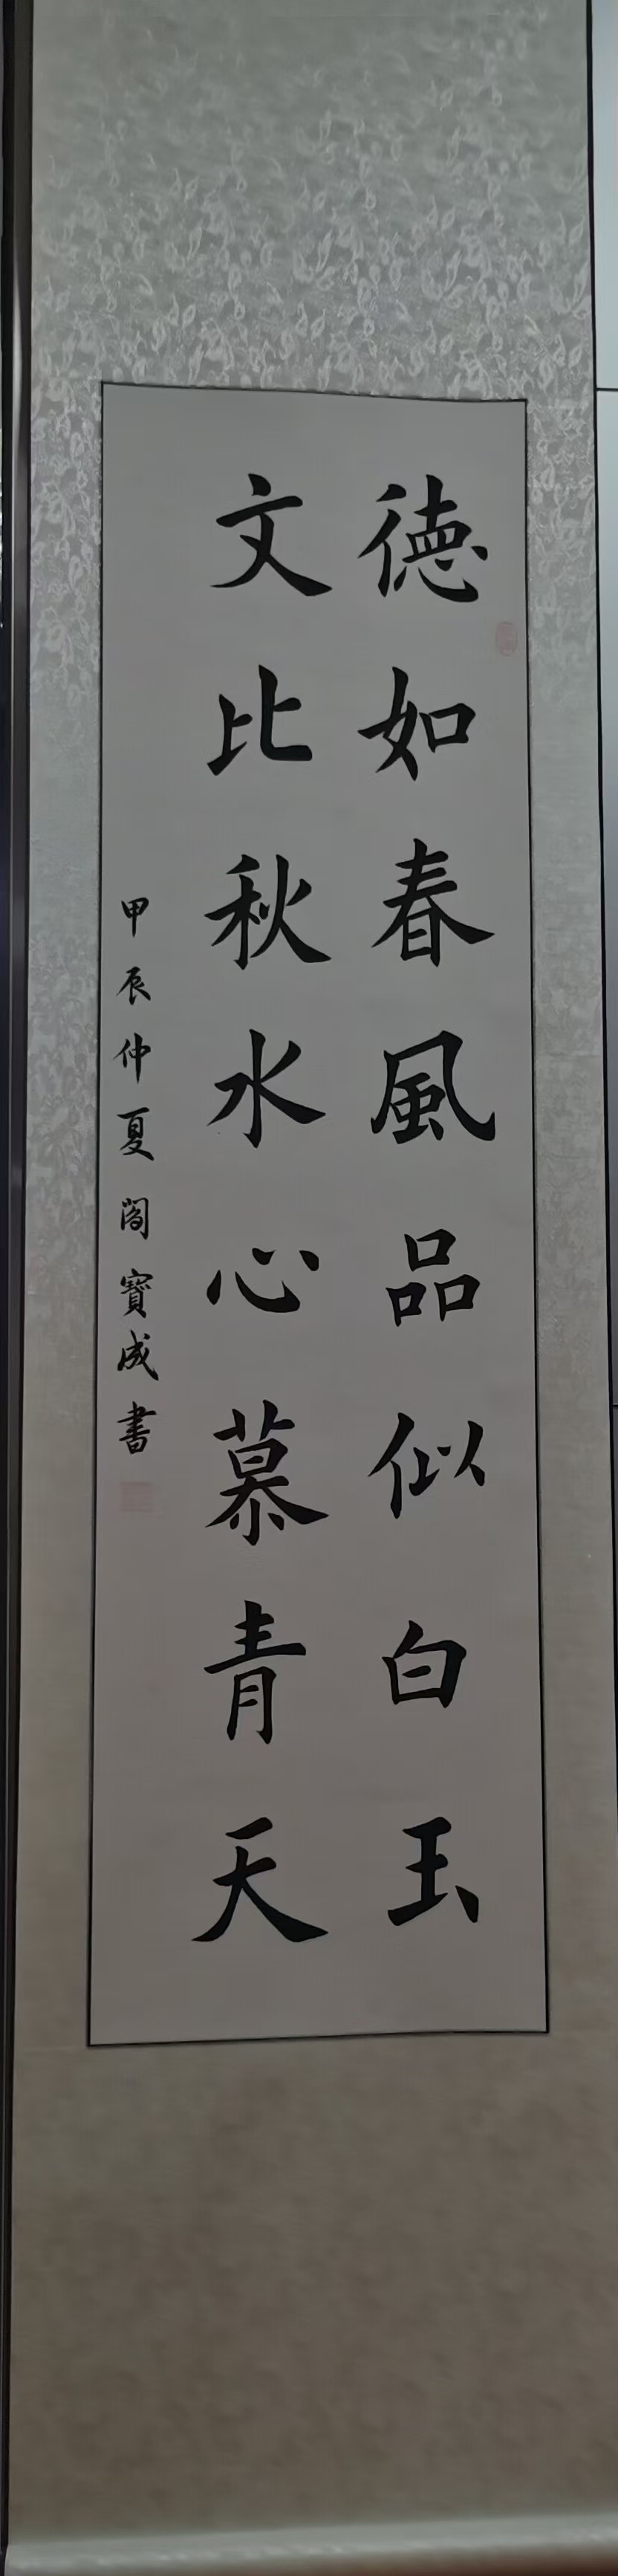 德如春風品似白玉
文比秋水心慕青天
甲辰仲夏閻寶成書